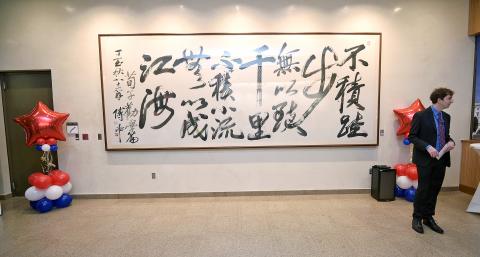 不積跬
步
無以致
千里
不積小流
無以成
江海
荀子勸學篇